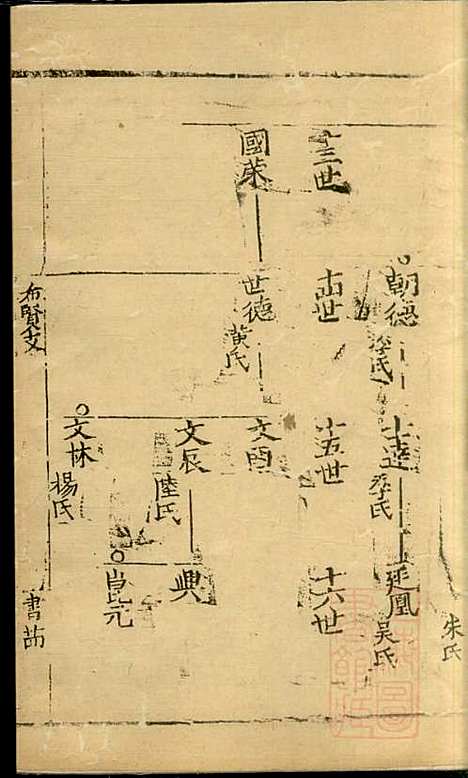 朱氏
朝德
李氏
士達
季氏
延鳳
吳氏
十三世
十四世
十五世
十六世
國荣
世德
黃氏
文酉
文辰
陸氏
興
文林
楊氏
崑元
布賢支